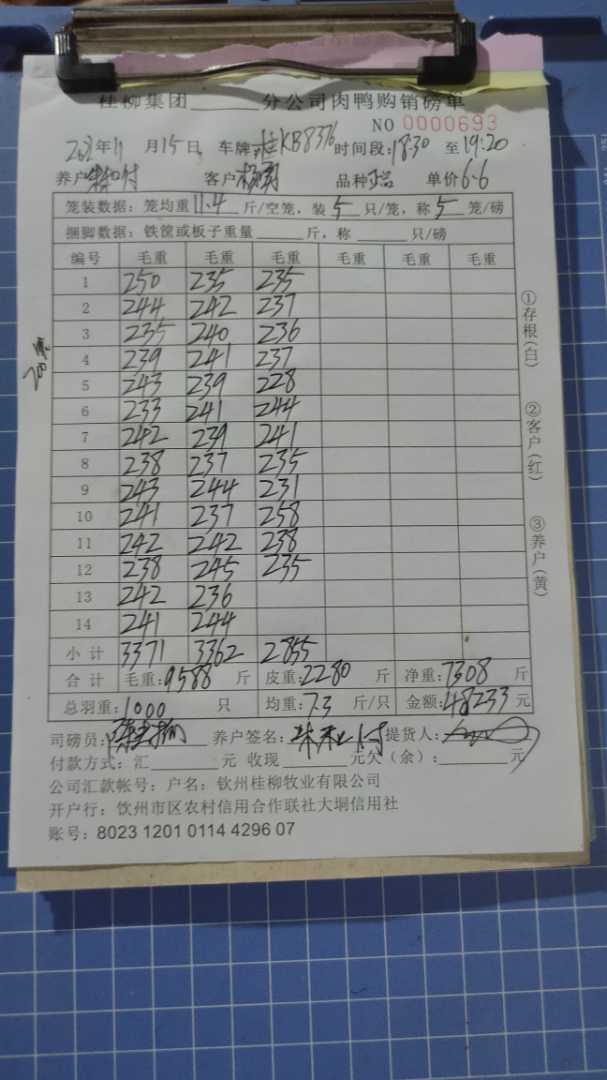 桂柳集团______分公司肉鸭购销磅单
NO 0000693
年11月15日 车牌:桂KB8376 时间段:18:30 至19:20
养户 客户 品种 单价6.6
笼装数据: 笼均重11.4斤/空笼, 装5只/笼, 称5笼/磅
捆脚数据: 铁筐或板子重量______斤, 称______只/磅
编号 毛重 毛重 毛重 毛重 毛重 毛重
1 250 235 235
2 244 242 237
3 235 240 236
4 239 241 237
5 243 239 228
6 233 241 244
7 242 239 241
8 238 237 235
9 243 244 231
10 241 237 258
11 242 242 238
12 238 245 235
13 242 236
14 241 244
小计 3371 3362 2855
合计 毛重:9588斤 皮重:2280斤 净重:7308斤
总羽重:1000只 均重:7.3斤/只 金额:48233元
司磅员: 养户签名: 提货人:
付款方式: 汇______元 收现______元欠(余):______元
公司汇款帐号: 户名: 钦州桂柳牧业有限公司
开户行: 钦州市区农村信用合作联社大垌信用社
账号: 8023 1201 0114 4296 07
①存根(白)
②客户(红)
③养户(黄)